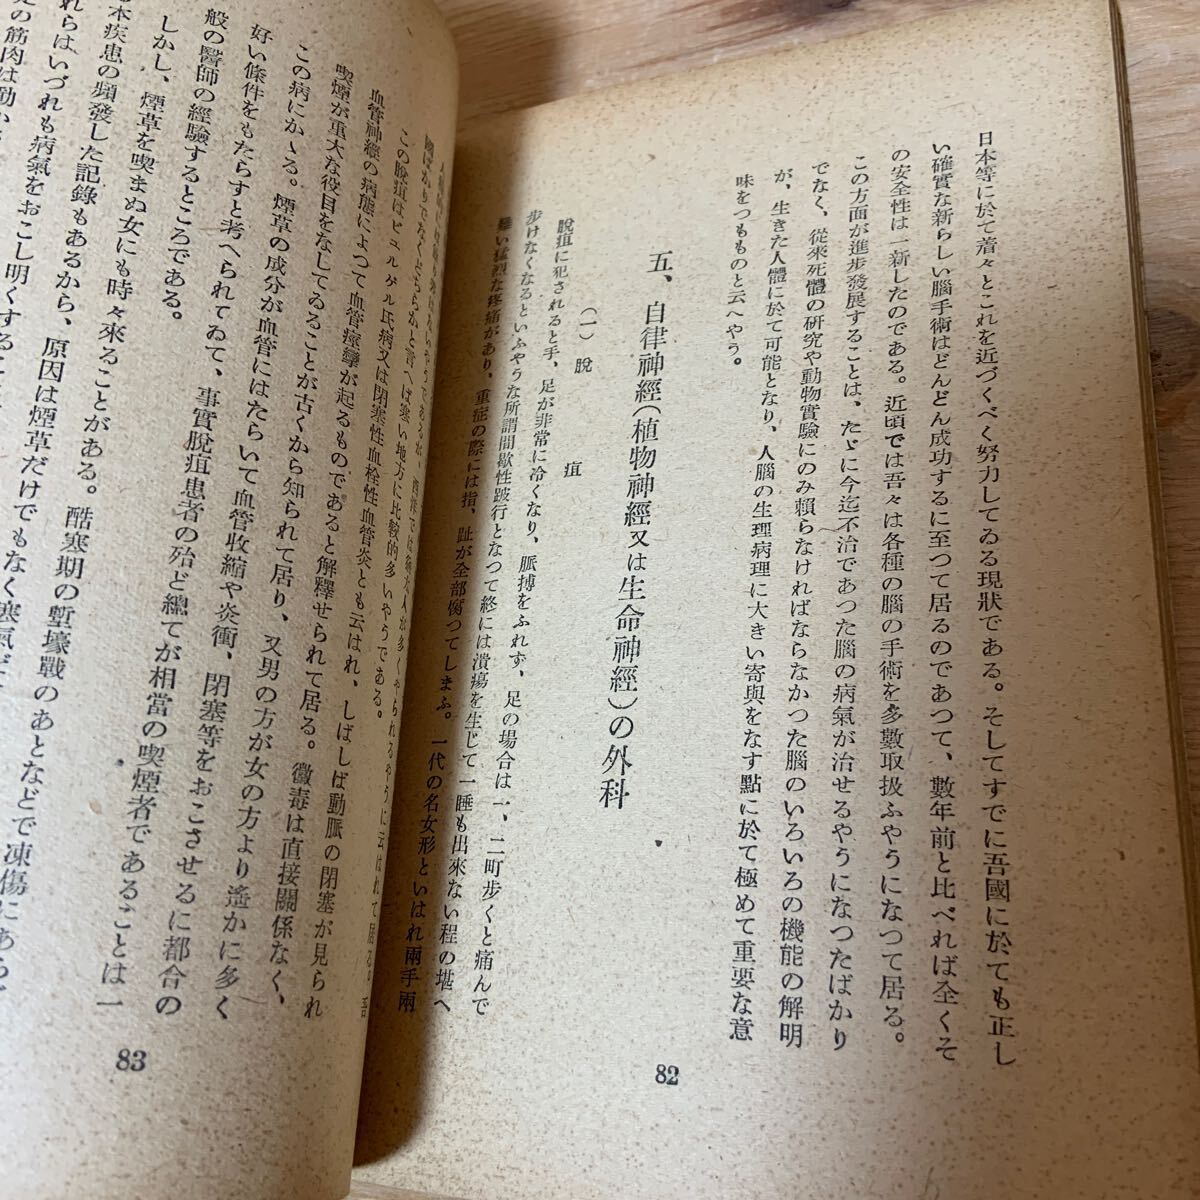 日本等に於て着々とこれを近づくべく努力してゐる現狀である。そしてすでに吾國に於ても正し
い確實な新らしい腦手術はどんどん成功するに至つて居るのであつて、數年前と比べれば全くそ
の安全性は一新したのである。近頃では吾々は各種の腦の手術を多數取扱ふやうになつて居る。
この方面が進步發展することは、たゞに今迄不治であつた腦の病氣が治せるやうになつたばかり
でなく、從來死體の研究や動物實驗にのみ賴らなければならなかつた腦のいろいろの機能の解明
が、生きた人體に於て可能となり、人腦の生理病理に大きい寄與をなす點に於て極めて重要な意
味をつもものと云へやう。
五、自律神經(植物神經又は生命神經)の外科
(一)脫疽
脫疽に犯されると手、足が非常に冷くなり、脈搏をふれず、足の場合は一、二町步くと痛んで
步けなくなるといふやうな所謂間歇性跛行となつて終には潰瘍を生じて一睡も出來ない程の堪へ
難い猛烈な疼痛があり、重症の際には指、趾が全部腐つてしまふ。一代の名女形といはれ兩手兩
82
國ばかりでなくどちらかと言へば寒い地方に比較的多いやうである。
この脫疽はビュルゲル氏病又は閉塞性血栓性血管炎とも云はれ、しばしば動脈の閉塞が見られ
血管神經の病態によつて血管痙攣が起るものであると解釋せられて居る。黴毒は直接關係なく、
喫煙が重大な役目をなしてゐることが古くから知られて居り、又男の方が女の方より遙かに多く
この病にかゝる。煙草の成分が血管にはたらいて血管收縮や炎衝、閉塞等をおこさせるに都合の
好い條件をもたらすと考へられてゐて、事實脫疽患者の殆ど總てが相當の喫煙者であることは一
般の醫師の經驗するところである。
しかし、煙草を喫まぬ女にも時々來ることがある。酷寒期の塹壕戰のあとなどで凍傷にあ
本疾患の頻發した記錄もあるから、原因は煙草だけでもなく寒氣
れらはいづれも病氣をおこし明くする
の筋肉は動か
83